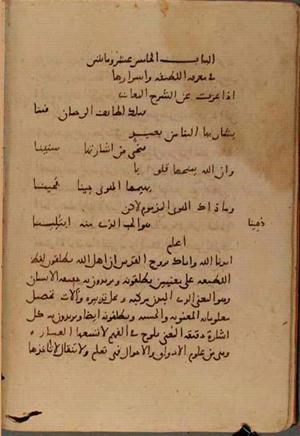 الباب الخامس عشر ومائتان
في معرفة اللطيفة واسرارها
اذا عزت عن الشرح المعاني
فتلك لطايف الرحمان فينا
يشار بها الينا من بعيد
فنحيى من اشارتها سنينا
وان الله يمنحها قلوبا
يميتها الهوى حينا فحينا
وما ذاك الهوى المذموم لاكن
هو الحب الذي منه ابتلينا
اعلم
ايدنا الله واياك بروح القدس ان اهل الله يطلقون لفظ
اللطيفة على معنيين يطلقونه ويريدون به حقيقة الانسان
وهو المعنى الذي البدن مركبه ومحل تدبيره والات تحصيل
معلوماته المعنوية والحسية ويطلقونه ايضا ويريدون به كل
اشارة دقيقة المعنى تلوح في الفهم لا تسعها العبارة
وهي من علوم الاذواق والاحوال فهي تعلم ولا تنتقل لا تاخذها